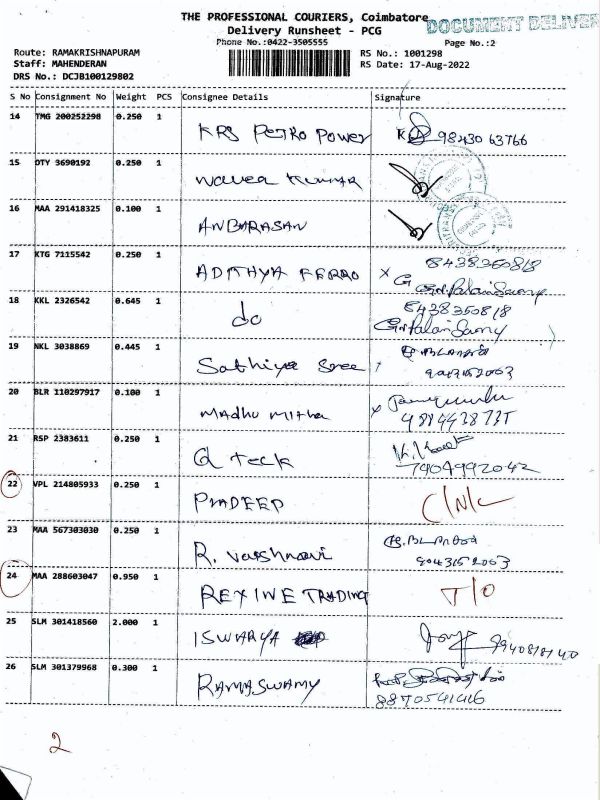 THE PROFESSIONAL COURIERS, Coimbatore
DOCUMENT DELIVER
Delivery Runsheet - PCG
Phone No.:0422-3505555
Page No.:2
Route: RAMAKRISHNAPURAM
RS No.: 1001298
Staff: MAHENDERAN
RS Date: 17-Aug-2022
DRS No.: DCJB100129802
S No Consignment No Weight PCS Consignee Details Signature
14 TMG 200252298 0.250 1 KRS Petro Power 98430 63766
15 DTY 3690192 0.250 1 KUMAR
16 MAA 291418325 0.100 1 ANBARASAN
17 KTG 7115542 0.250 1 ADITHYA FERRO X 8438350818
18 KKL 2326542 0.645 1 do 8438350818
19 NKL 3038869 0.445 1 Sathiya Sree
20 BLR 110297917 0.100 1 MADHU MITHA X
21 RSP 2383611 0.250 1 Q teck 7904992042
22 VPL 214805933 0.250 1 PRADEEP C/N/L
23 MAA 567303030 0.250 1 R. Varshnavi 9043152003
24 MAA 288603047 0.950 1 REXINE TRADING T/O
25 SLM 301418560 2.000 1 ISWARYA
26 SLM 301379968 0.300 1 RAMASWAMY 8870541416
2